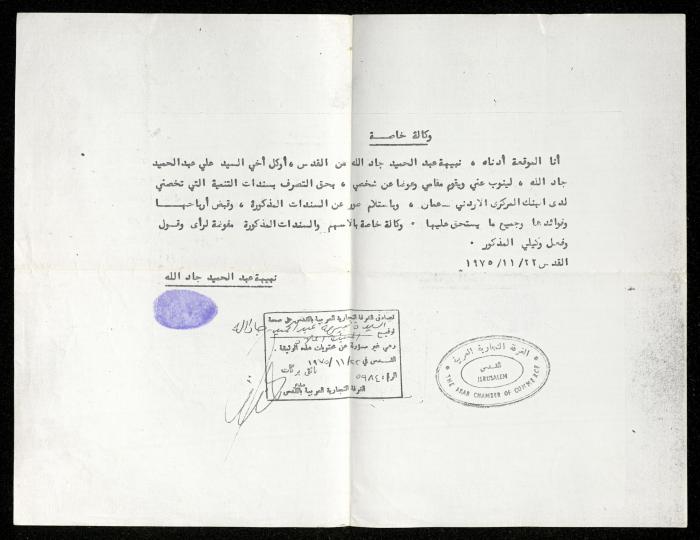 وكالة خاصة
أنا الموقعة أدناه ، نبيهة عبد الحميد جاد الله من القدس ، أوكل أخي السيد علي عبد الحميد
جاد الله ، لينوب عني ويقوم مقامي وعوضا عن شخصي ، بحق التصرف بسندات التنمية التي تخصني
لدى البنك المركزي الاردني ـ عمان ، وباستلام صور عن السندات المذكورة ، وقبض أرباحها
وفوائدها وجميع ما يستحق عليها ٠ وكالة خاصة بالاسهم والسندات المذكورة مفوضة لرأى وقول
وفعل وكيلي المذكور ٠
القدس ١٩٧٥/١١/٢٢
نبيهة عبد الحميد جاد الله
تصادق الغرفة التجارية العربية بالقدس على صحة
توقيع السيدة نبيهة عبد الحميد جاد الله
وهي غير مسؤولة عن محتويات هذه الوثيقة .
القدس في ١٩٧٥/١١/٢٢
الرقم: ٥٩٨٤ فائق بركات
الغرفة التجارية العربية بالقدس
الغرفة التجارية العربية
القدس
JERUSALEM
THE ARAB CHAMBER OF COMMERCE